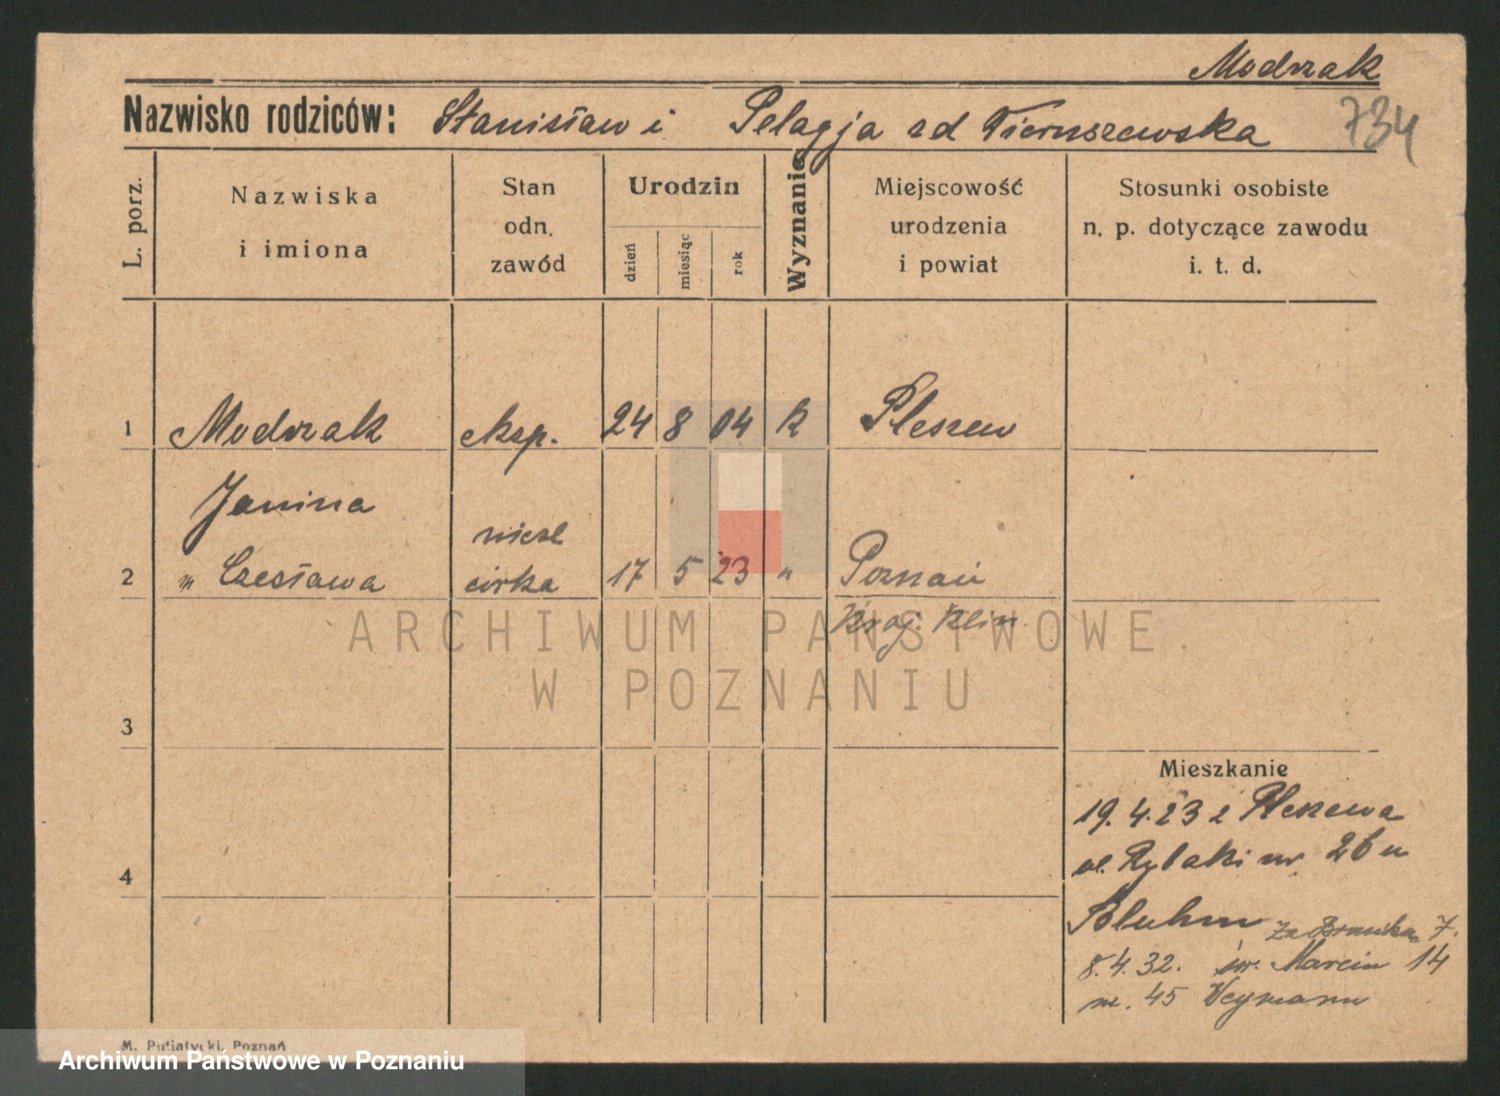 Modrzak
Nazwisko rodziców: Stanisław i Pelagja zd Tieruszewska 734
L. porz.
Nazwiska
i imiona
Stan
odn.
zawód
Urodzin
dzień
miesiąc
rok
Wyznanie
Miejscowość
urodzenia
i powiat
Stosunki osobiste
n. p. dotyczące zawodu
i. t. d.
1 Modrzak eksp. 24 8 04 k Pleszew
Janina
nieśl
2 " Czesława córka 17 5 23 " Poznań
Kraj. Klin.
ARCHIWUM PAŃSTWOWE
W POZNANIU
3
Mieszkanie
19.4.23 z Pleszewa
ul. Rybaki nr 26 u
4
Bluhm Za Bramką 7.
8.4.32. św. Marcin 14
m. 45 Weymann
M. Putiatycki, Poznań
Archiwum Państwowe w Poznaniu